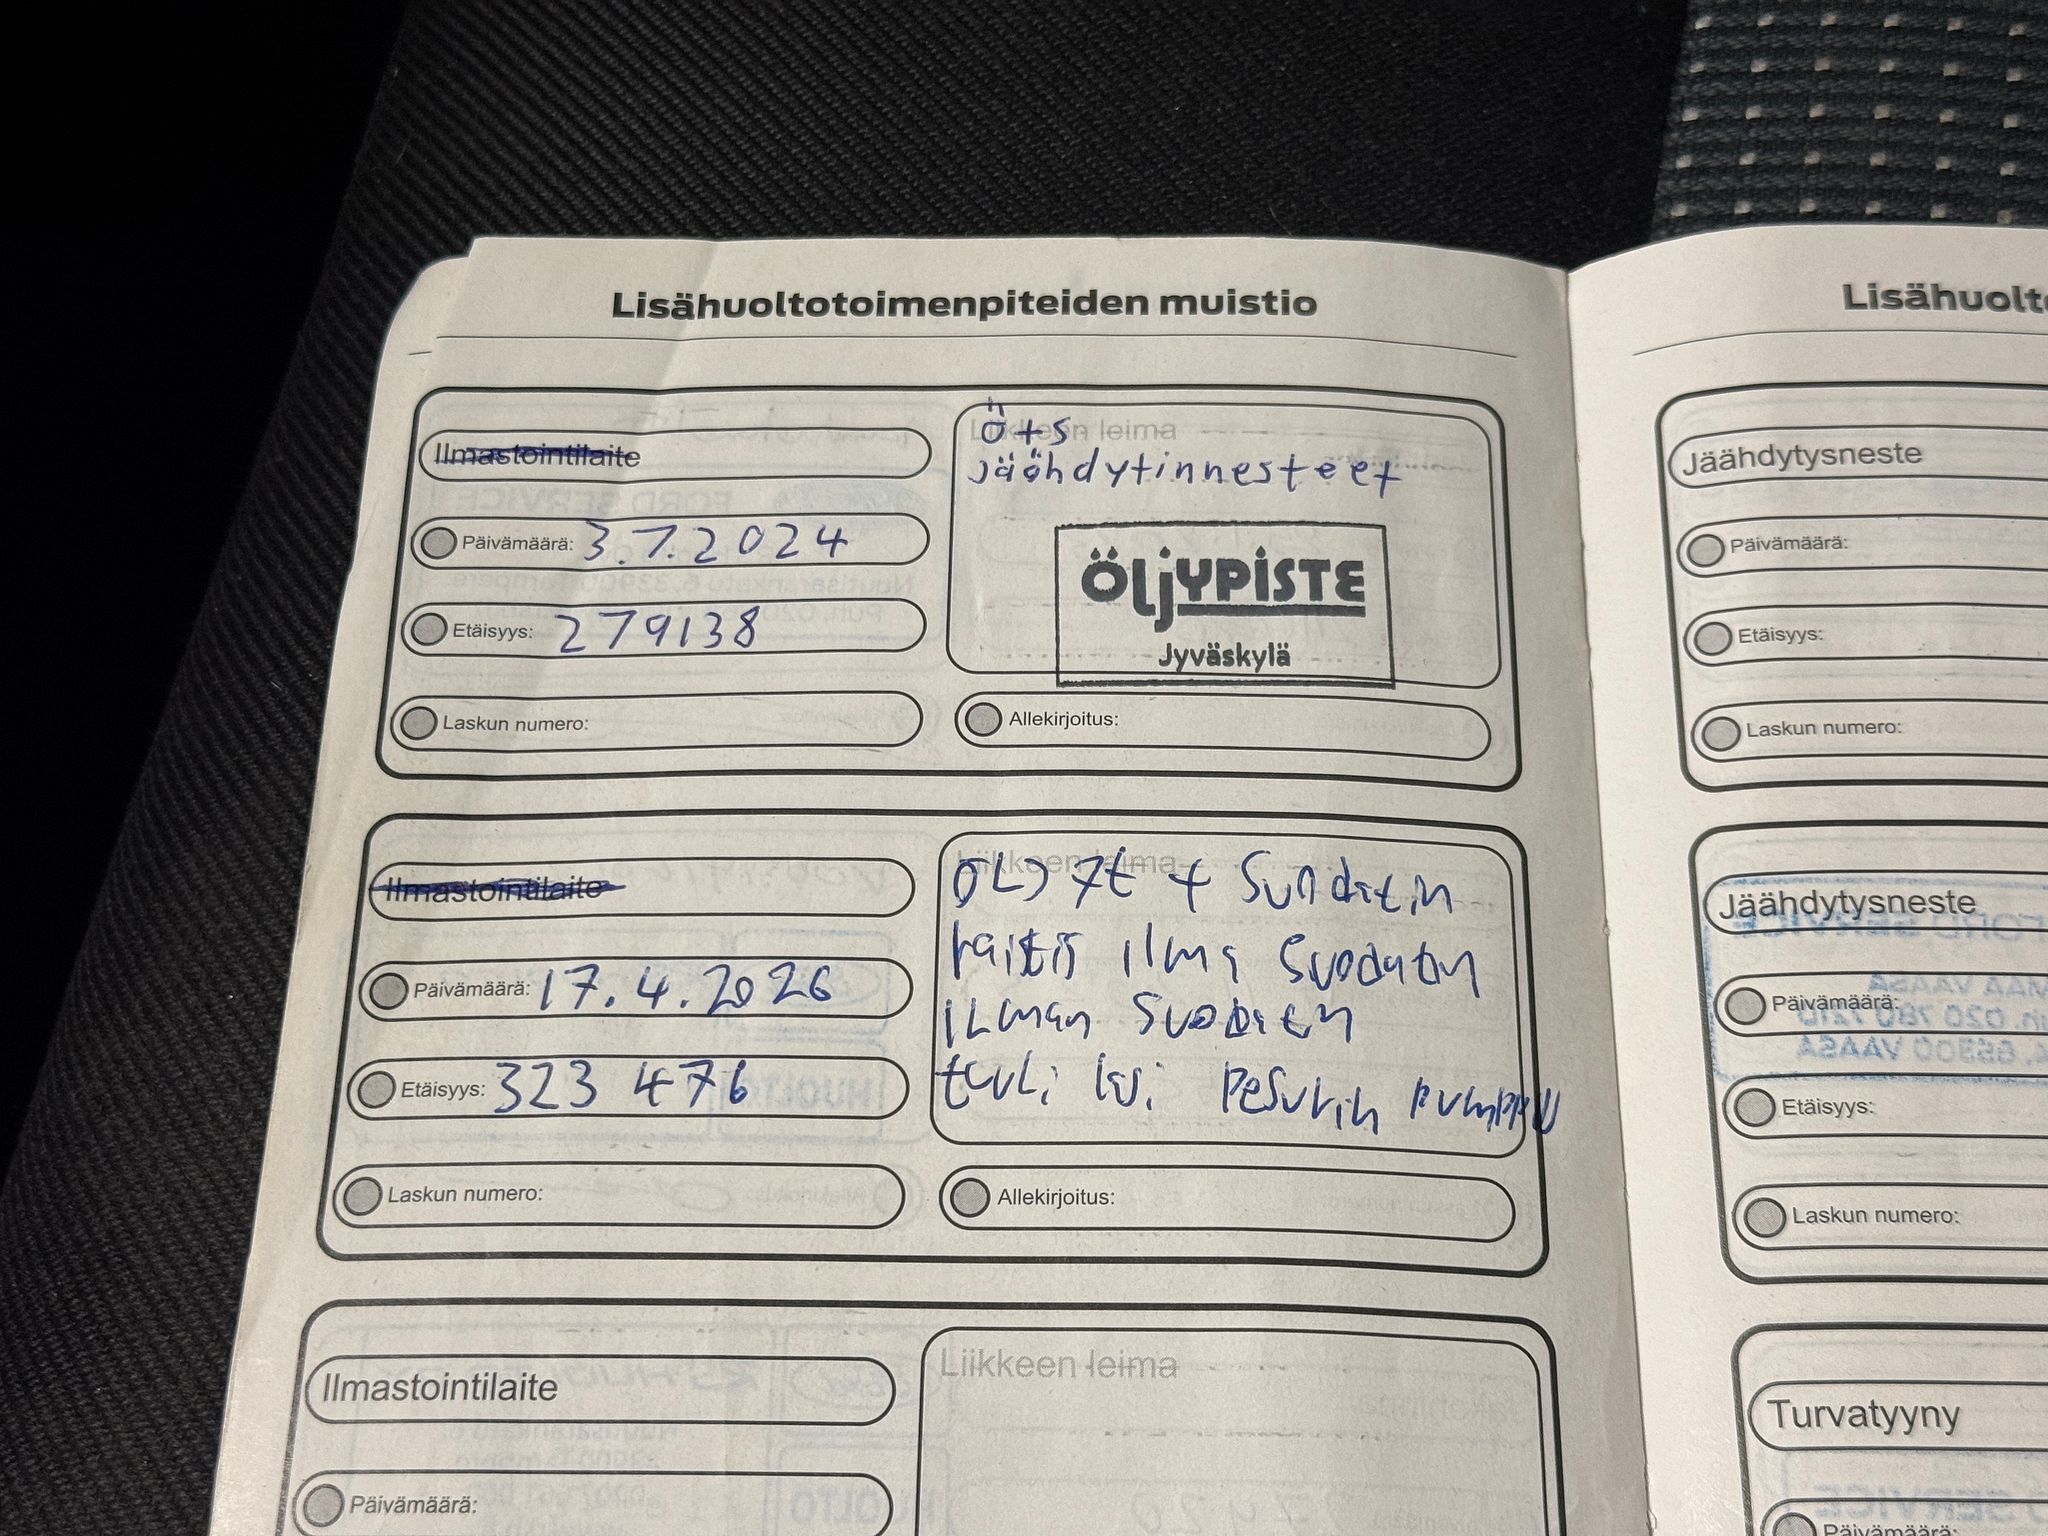 Lisähuoltotoimenpiteiden muistio
Ilmastointilaite
Päivämäärä: 3.7.2024
Etäisyys: 279138
Laskun numero:
Liikkeen leima
Ö+S
Jäähdytinnesteet
ÖLJYPISTE
Jyväskylä
Allekirjoitus:
Ilmastointilaite
Päivämäärä: 17.4.2026
Etäisyys: 323 476
Laskun numero:
Liikkeen leima
+
ilma Suodatin
ILman Suodatin
tuuli lasi Pesurin PumPPU
Allekirjoitus:
Ilmastointilaite
Päivämäärä:
Liikkeen leima
Lisähuolto
Jäähdytysneste
Päivämäärä:
Etäisyys:
Laskun numero:
Jäähdytysneste
Päivämäärä:
Etäisyys:
Laskun numero:
Turvatyyny
Päivämäärä: